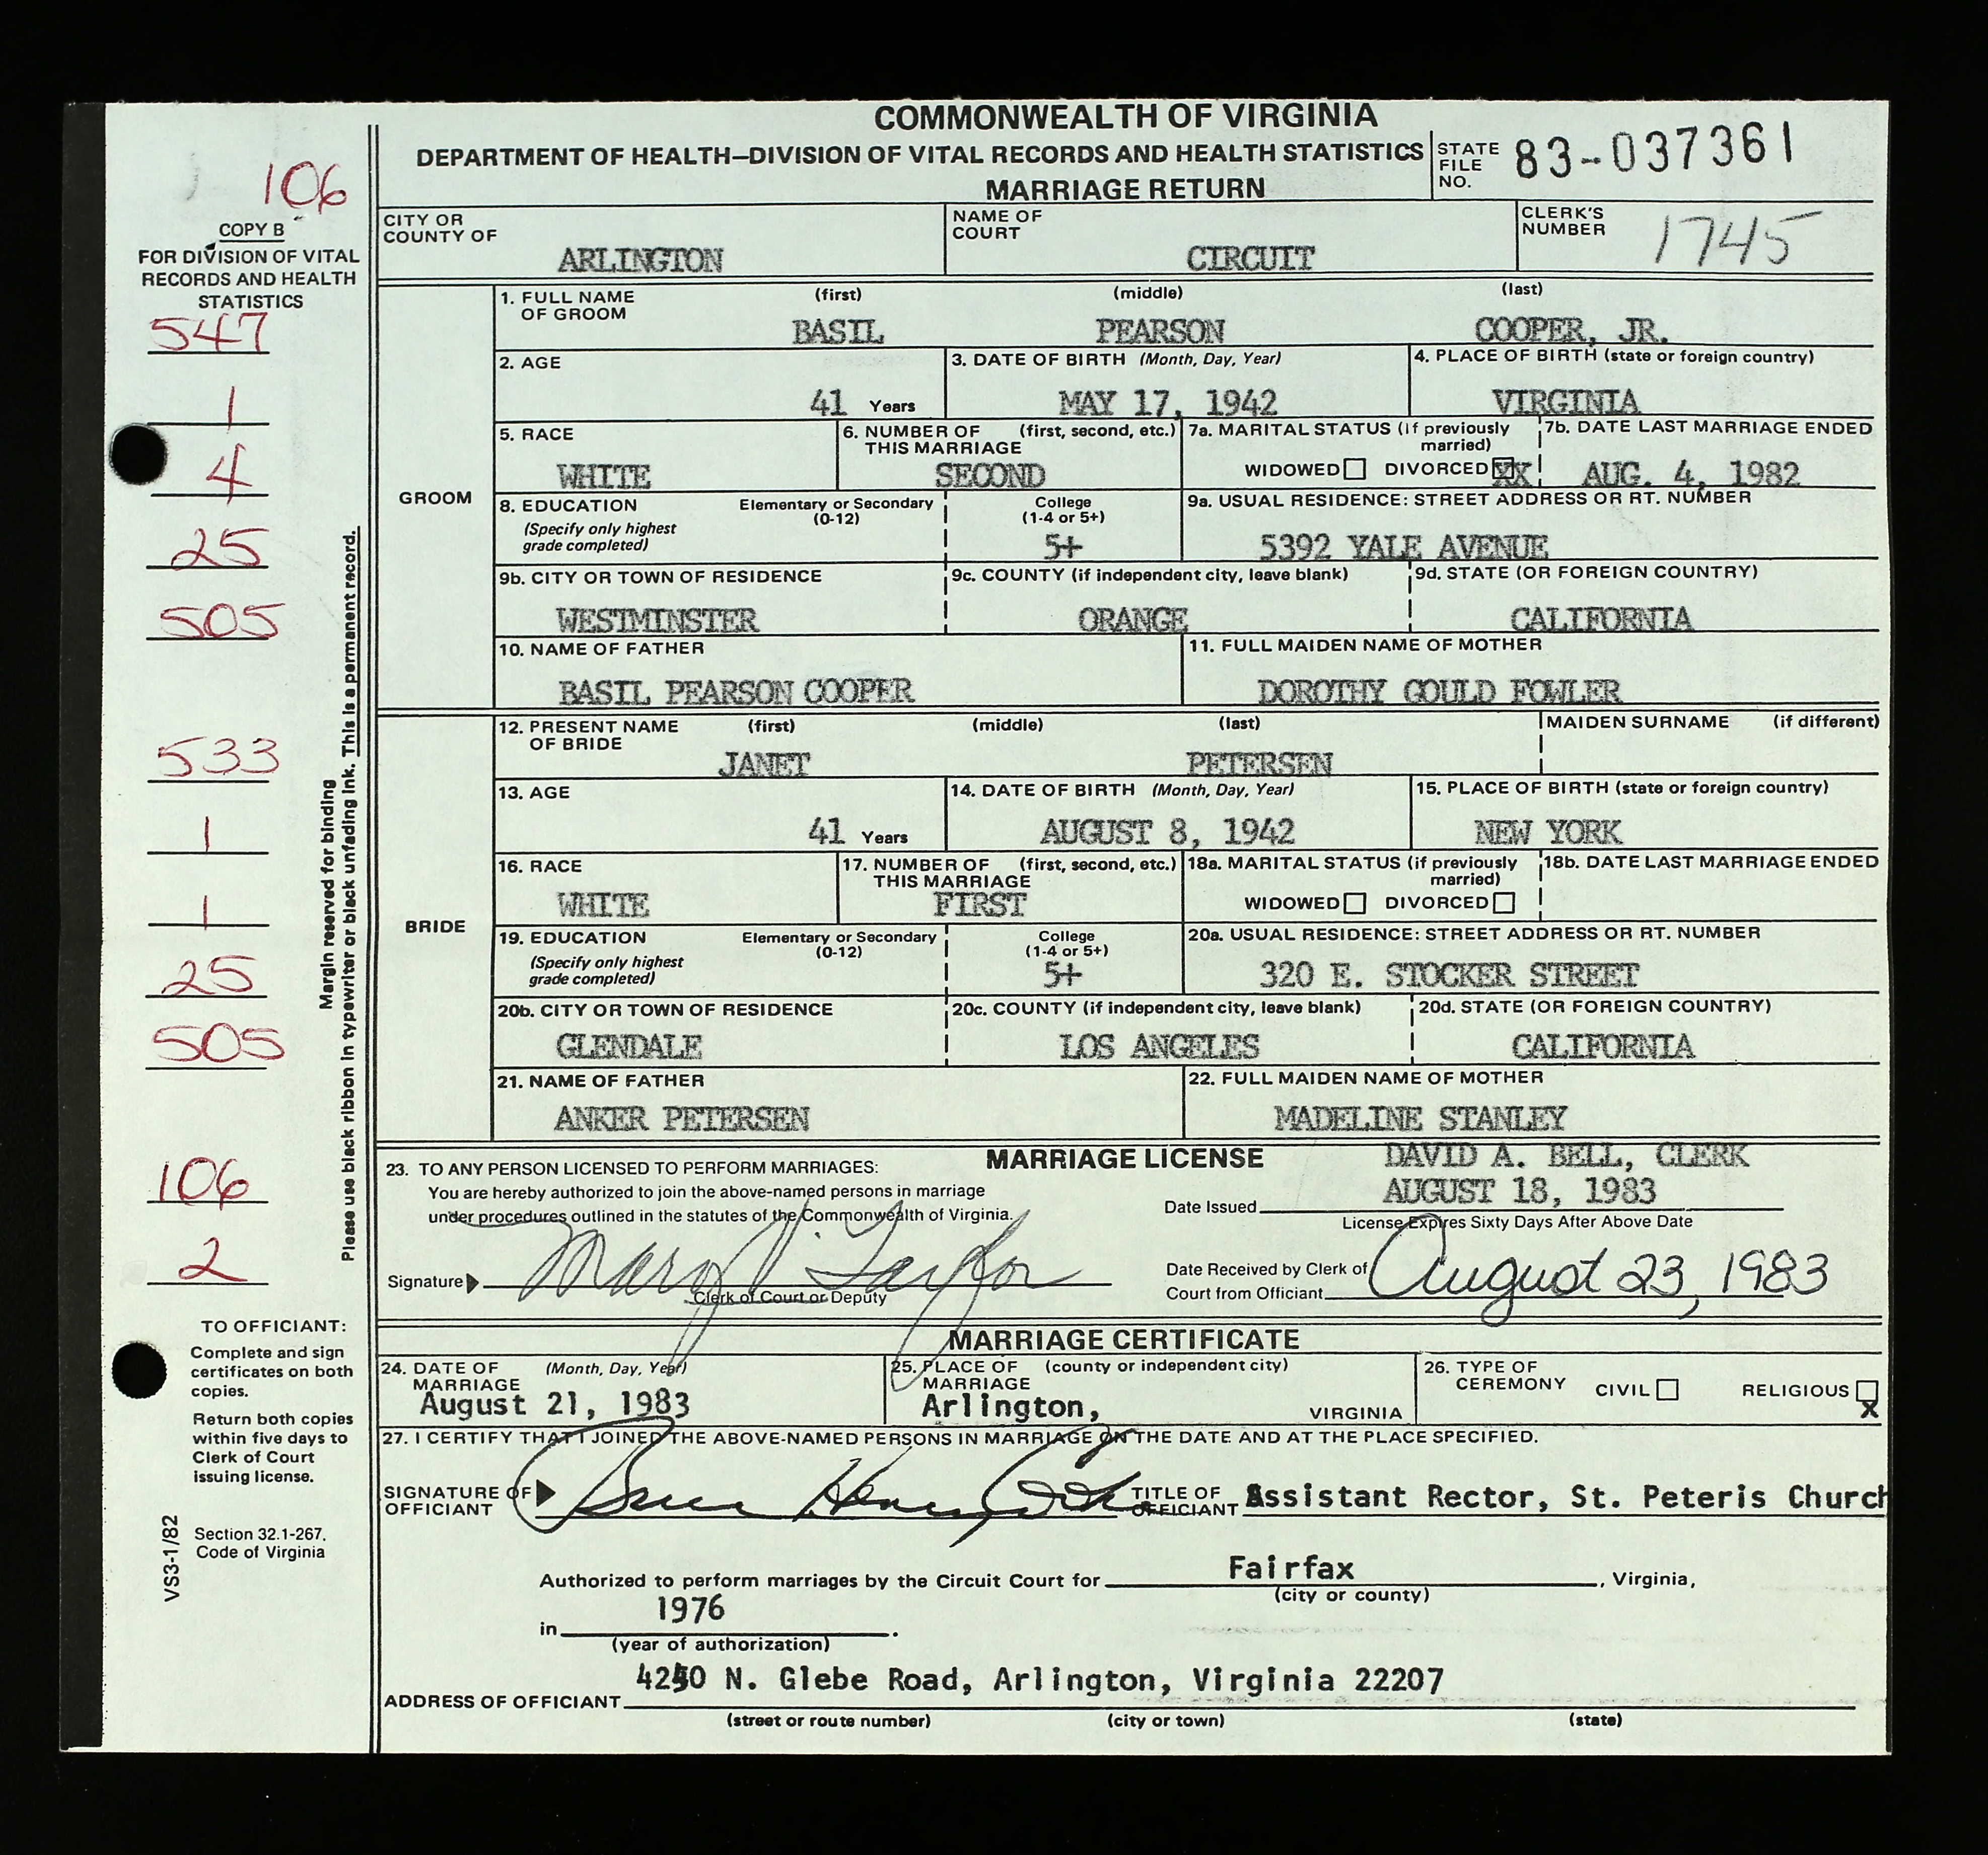 COMMONWEALTH OF VIRGINIA
DEPARTMENT OF HEALTH—DIVISION OF VITAL RECORDS AND HEALTH STATISTICS
MARRIAGE RETURN
STATE FILE NO. 83-037361
106
COPY B
FOR DIVISION OF VITAL
RECORDS AND HEALTH
STATISTICS
547
1
4
25
505
533
1
1
25
505
106
2
Margin reserved for binding
Please use black ribbon in typewriter or black unfading ink. This is a permanent record.
TO OFFICIANT:
Complete and sign
certificates on both
copies.
Return both copies
within five days to
Clerk of Court
issuing license.
Section 32.1-267,
Code of Virginia
VS3-1/82
CITY OR COUNTY OF ARLINGTON
NAME OF COURT CIRCUIT
CLERK'S NUMBER 1745
GROOM
1. FULL NAME OF GROOM (first) (middle) (last)
BASIL PEARSON COOPER, JR.
2. AGE 41 Years
3. DATE OF BIRTH (Month, Day, Year) MAY 17, 1942
4. PLACE OF BIRTH (state or foreign country) VIRGINIA
5. RACE WHITE
6. NUMBER OF THIS MARRIAGE (first, second, etc.) SECOND
7a. MARITAL STATUS (if previously married) WIDOWED DIVORCED XX
7b. DATE LAST MARRIAGE ENDED AUG. 4, 1982
8. EDUCATION (Specify only highest grade completed) Elementary or Secondary (0-12) College (1-4 or 5+) 5+
9a. USUAL RESIDENCE: STREET ADDRESS OR RT. NUMBER 5392 YALE AVENUE
9b. CITY OR TOWN OF RESIDENCE WESTMINSTER
9c. COUNTY (if independent city, leave blank) ORANGE
9d. STATE (OR FOREIGN COUNTRY) CALIFORNIA
10. NAME OF FATHER BASIL PEARSON COOPER
11. FULL MAIDEN NAME OF MOTHER DOROTHY GOULD FOWLER
BRIDE
12. PRESENT NAME OF BRIDE (first) (middle) (last) MAIDEN SURNAME (if different)
JANET PETERSEN
13. AGE 41 Years
14. DATE OF BIRTH (Month, Day, Year) AUGUST 8, 1942
15. PLACE OF BIRTH (state or foreign country) NEW YORK
16. RACE WHITE
17. NUMBER OF THIS MARRIAGE (first, second, etc.) FIRST
18a. MARITAL STATUS (if previously married) WIDOWED DIVORCED
18b. DATE LAST MARRIAGE ENDED
19. EDUCATION (Specify only highest grade completed) Elementary or Secondary (0-12) College (1-4 or 5+) 5+
20a. USUAL RESIDENCE: STREET ADDRESS OR RT. NUMBER 320 E. STOCKER STREET
20b. CITY OR TOWN OF RESIDENCE GLENDALE
20c. COUNTY (if independent city, leave blank) LOS ANGELES
20d. STATE (OR FOREIGN COUNTRY) CALIFORNIA
21. NAME OF FATHER ANKER PETERSEN
22. FULL MAIDEN NAME OF MOTHER MADELINE STANLEY
MARRIAGE LICENSE
23. TO ANY PERSON LICENSED TO PERFORM MARRIAGES:
You are hereby authorized to join the above-named persons in marriage
under procedures outlined in the statutes of the Commonwealth of Virginia.
DAVID A. BELL, CLERK
Date Issued AUGUST 18, 1983
License Expires Sixty Days After Above Date
Signature Mary V. Taylor
Clerk of Court or Deputy
Date Received by Clerk of Court from Officiant August 23, 1983
MARRIAGE CERTIFICATE
24. DATE OF MARRIAGE (Month, Day, Year) August 21, 1983
25. PLACE OF MARRIAGE (county or independent city) Arlington, VIRGINIA
26. TYPE OF CEREMONY CIVIL RELIGIOUS X
27. I CERTIFY THAT I JOINED THE ABOVE-NAMED PERSONS IN MARRIAGE ON THE DATE AND AT THE PLACE SPECIFIED.
SIGNATURE OF OFFICIANT Bruce Henry
TITLE OF OFFICIANT Assistant Rector, St. Peteris Church
Authorized to perform marriages by the Circuit Court for Fairfax, Virginia,
(city or county)
in 1976.
(year of authorization)
ADDRESS OF OFFICIANT N. Glebe Road, Arlington, Virginia 22207
(street or route number) (city or town) (state)